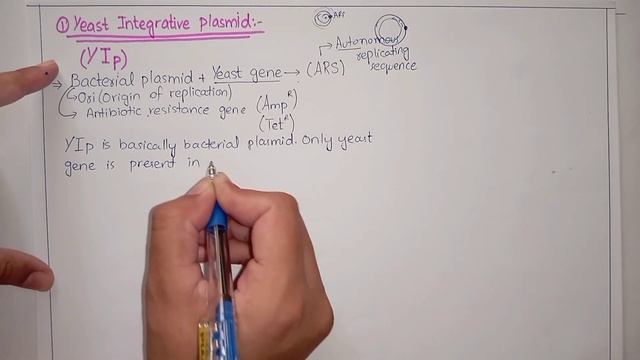 ① Yeast Integrative plasmid:-
ARS
(YIp)
Autonomous
replicating
sequence
→ Bacterial plasmid + Yeast gene → (ARS)
Ori (Origin of replication)
Antibiotic resistance gene (Amp^R)
(Tet^R)
YIp is basically bacterial plasmid. Only yeast
gene is present in